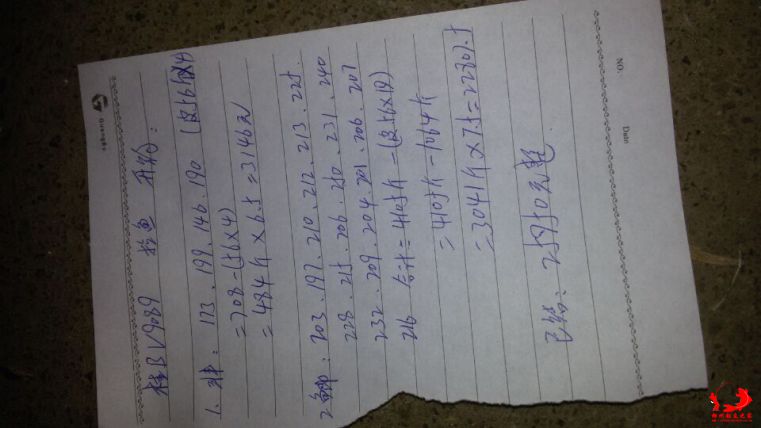 NO.
Date
Guangbo
桂B V9089 拉鱼
1. 173.199.146.190 (皮56x4)
=708-(56x4)
=484斤x6.5=3146元
2. 203.197.210.212.213.225
228.215.206.250.231.240
232.209.204.201.206.207
216 合计=4105斤-(皮56x19)
=4105斤-1064斤
=3041斤x7.5=22807.5
25950元整